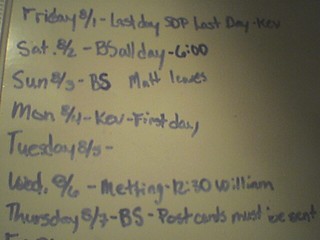 Friday 8/1 - Last day SOP Last Day - Kev
Sat. 8/2 - BS all day - 6:00
Sun 8/3 - BS Matt leaves
Mon 8/4 - Kev - First day
Tuesday 8/5 -
Wed, 8/6 - Metting - 12:30 William
Thursday 8/7 - BS - Post cards must be sent